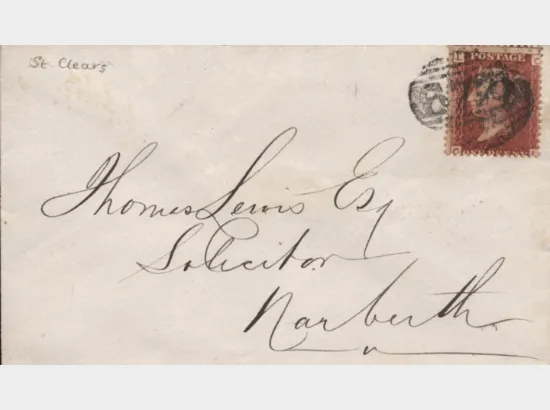 St. Clears
POSTAGE
Thomas Lewis Esq
Solicitor
Narberth